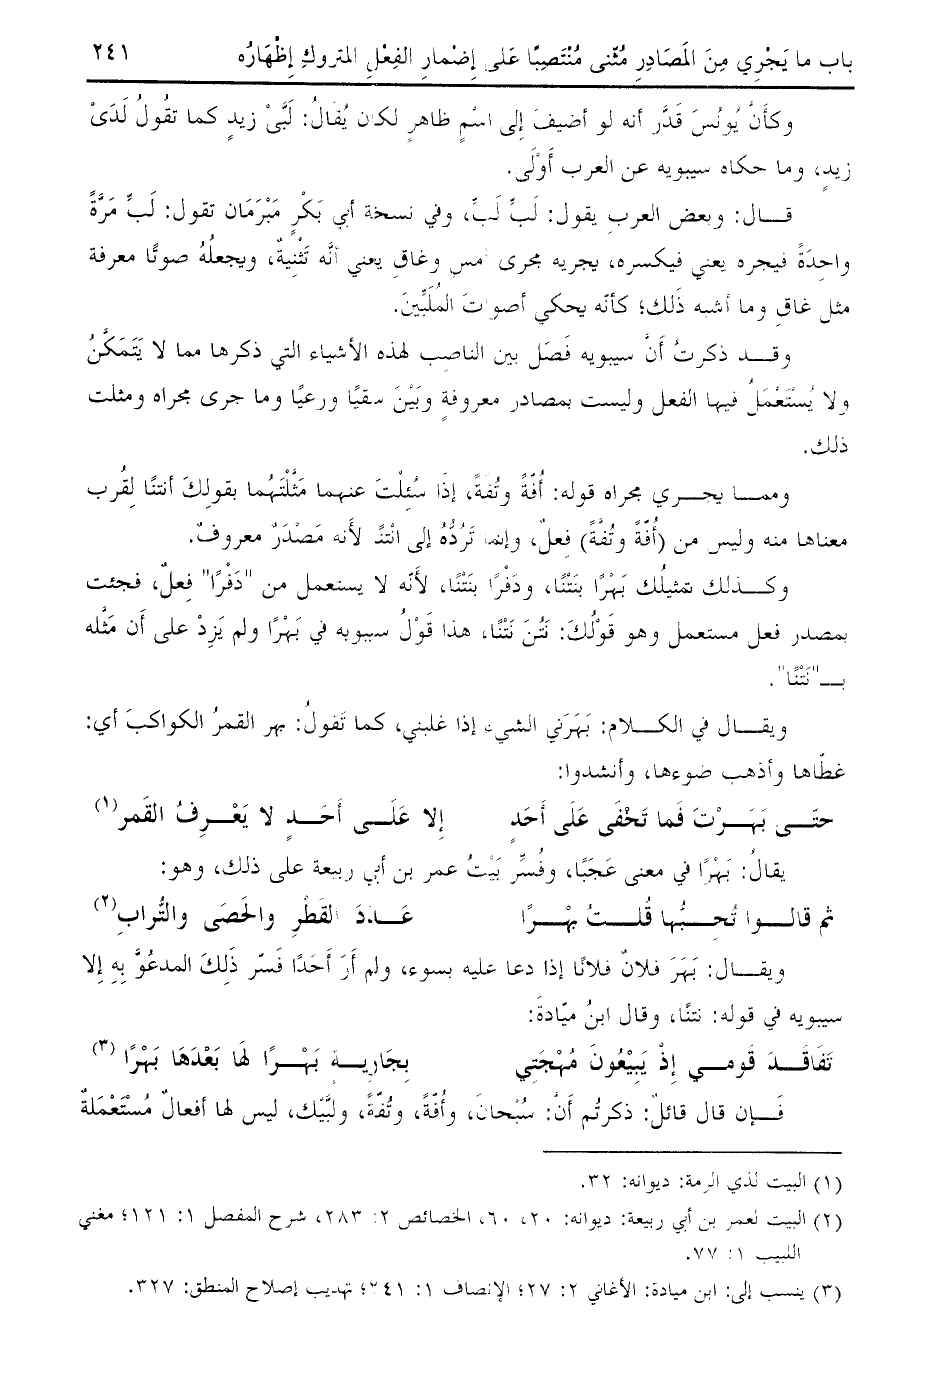 باب ما يَجْرِي مِنَ المَصَادِرِ مُثنى مُنْتَصِبًا عَلى إضْمارِ الفِعْلِ المتروكِ إظْهَارُه ٢٤١
وكأَنَّ يُونُسَ قَدَّر أنه لو أضيفَ إلى اسْمٍ ظاهرٍ لكان يُقالُ: لَبَّى زيدٍ كما تقُولُ لَدَىْ
زيدٍ، وما حكاه سيبويه عن العرب أَوْلَى.
قــال: وبعض العرب يقول: لَبِّ لَبِّ، وفي نسخة أبي بَكْرٍ مَبْرَمَان تقول: لَبِّ مَرَّةً
واحِدَةً فيجره يعني فيكسره، يجريه مجرى أمسِ وغاقِ يعني أنَّه تَثْنِيةٌ، ويجعلُهُ صوتًا معرفة
مثل غاقِ وما أشبه ذَلك؛ كأنّه يحكي أصواتَ المُلَبِّينَ.
وقــد ذكرتُ أنَّ سيبويه فَصَل بين الناصب لهذه الأشياء التي ذكرها مما لا يَتَمَكَّنُ
ولا يُسْتَعْمَلُ فيها الفعل وليست بمصادر معروفةٍ وبَيْنَ سقيًا ورعيًا وما جرى مجراه ومثلت
ذلك.
وممــا يجــري مجراه قوله: أُفّةً وتُفةً، إذَا سُئلْتَ عنهما مَثَّلْتَهُما بقولِكَ أنتنًا لقُرب
معناها منه وليس من (أُفّةً وتُفَّةً) فعلٌ، وإنما تَرُدُّهُ إلى انْتنًا لأنه مَصْدَرٌ معروفٌ.
وكــذلك تمثيلُك بَهْرًا بنَتْنًا، ودَفْرًا بنَتْنًا، لأنّه لا يستعمل من "دَفْرًا" فعلٌ، فجئت
بمصدر فعل مستعمل وهو قَوْلُكَ: نَتُنَ نَتْنًا، هذا قَوْلُ سيبويه في بَهْرًا ولم يَزِدْ على أن مَثَّله
بــ"نَتْنًا".
ويقــال في الكــلام: بَهَرَني الشيء إذا غلبني، كما تَقولُ: بهر القمرُ الكواكبَ أي:
غطّاها وأذهب ضوءها، وأنشدوا:
حتّــى بَهَــرْتَ فَما تَخْفَى عَلَى أَحَدٍ إلا عَلَــى أَحَــدٍ لا يَعْــرِفُ القَمَر(١)
يقالُ: بَهْرًا في معنى عَجَبًا، وفُسِّر بَيْتُ عمر بن أبي ربيعة على ذلك، وهو:
ثم قالــوا تُحــبُّها قُلــتُ بَهْــرًا عَــدَدَ القَطْرِ والحَصَى والتُّراب(٢)
ويقــال: بَهَرَ فلانٌ فلانًا إذا دعا عليه بسوء، ولم أرَ أَحَدًا فَسّر ذَلِكَ المدعُوَّ بِهِ إلا
سيبويه في قوله: نتنًا، وقال ابنُ ميّادةَ:
تَفَاقَــدَ قَومــي إذْ يَبِيْعُونَ مُهْجَتِي بِجَاريــةٍ بَهْــرًا لهَا بَعْدَهَا بَهْرًا (٣)
فَــإن قال قائلٌ: ذكرتُم أَنَّ: سُبْحانَ، وأُفّةً، وتُفّةً، ولَبَّيْك، ليس لها أفعالٌ مُسْتَعْمَلةٌ
(١) البيت لذي الرمة: ديوانه: ٣٢.
(٢) البيت لعمر بن أبي ربيعة: ديوانه: ٢٠، ٦٠، الخصائص ٢: ٢٨٣، شرح المفصل ١: ١٢١؛ مغني
اللبيب ١: ٧٧.
(٣) ينسب إلى: ابن ميادة: الأغاني ٢: ٢٧؛ الإنصاف ١: ٢٤١؛ تهذيب إصلاح المنطق: ٣٢٧.